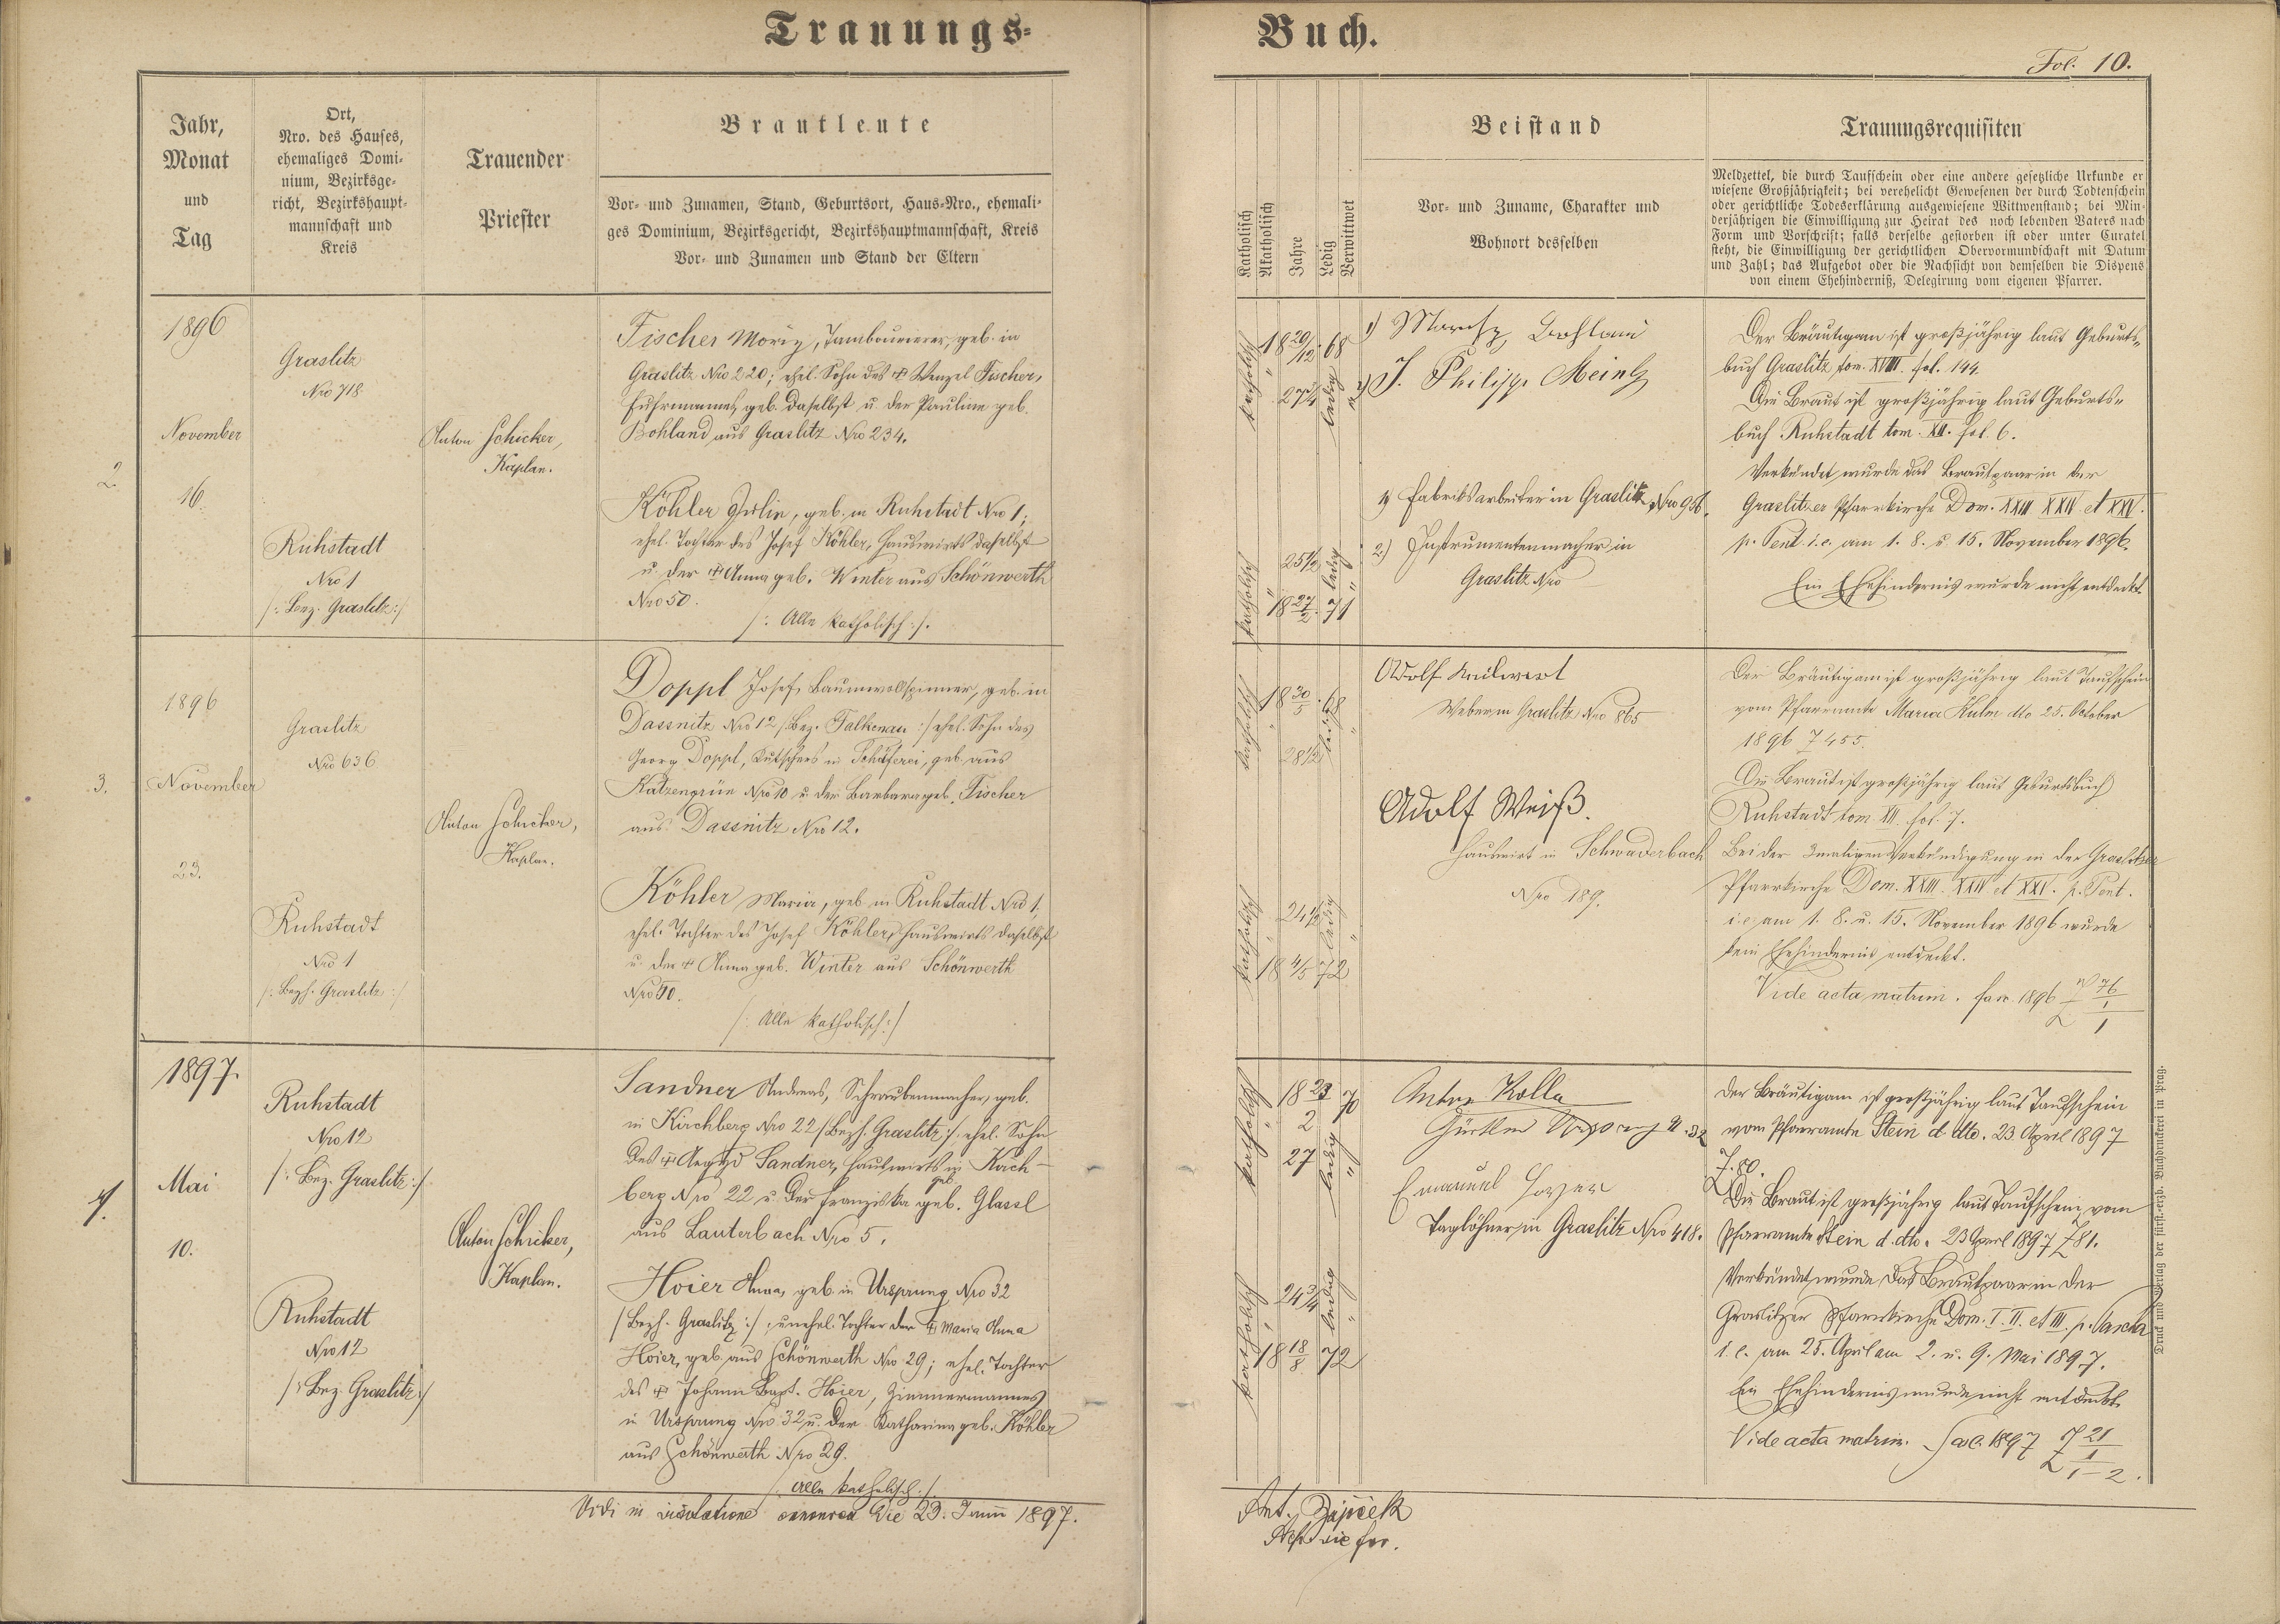 Trauungs-
Buch.
Fol. 10.
Jahr,
Monat
und
Tag
Ort,
Nro. des Hauses,
ehemaliges Domi-
nium, Bezirksge-
richt, Bezirkshaupt-
mannschaft und
Kreis
Trauender
Priester
Brautleute
Vor- und Zunamen, Stand, Geburtsort, Haus-Nro., ehemali-
ges Dominium, Bezirksgericht, Bezirkshauptmannschaft, Kreis
Vor- und Zunamen und Stand der Eltern
Katholisch
Akatholisch
Jahre
Ledig
Verwittwet
Beistand
Vor- und Zuname, Charakter und
Wohnort desselben
Trauungsrequisiten
Meldzettel, die durch Taufschein oder eine andere gesetzliche Urkunde er
wiesene Großjährigkeit; bei verehelicht Gewesenen der durch Todtenschein
oder gerichtliche Todeserklärung ausgewiesene Wittwenstand; bei Min-
derjährigen die Einwilligung zur Heirat des noch lebenden Vaters nach
Form und Vorschrift; falls derselbe gestorben ist oder unter Curatel
steht, die Einwilligung der gerichtlichen Obervormundschaft mit Datum
und Zahl; das Aufgebot oder die Nachsicht von demselben die Dispens
von einem Ehehinderniß, Delegirung vom eigenen Pfarrer.
2.
1896
November
16.
Graslitz
Nro 718
Ruhstadt
Nro 1
/: Bez. Graslitz :/
Anton Schicker,
Kaplan.
Fischer Moriz, Tambourierer, geb. in
Graslitz Nro 220; ehel. Sohn des + Wenzel Fischer,
Fuhrmannes, geb. daselbst u. der Pauline geb.
Bohland aus Graslitz Nro 234.
Köhler Julie, geb. in Ruhstadt Nro 1;
ehel. Tochter des Josef Köhler, Hauswirts daselbst
u. der + Anna geb. Winter aus Schönwerth
Nro 50.
/: Alle katholisch :/.
katholisch
18 20/12 68
ledig
katholisch
25 1/2
ledig
18 27/2 71
1) Moritz Bohland
2) J. Philipp Meinl
1) Fabriksarbeiter in Graslitz Nro 956.
2.) Instrumentenmacher in
Graslitz Nro
Der Bräutigam ist großjährig laut Geburts-
buch Graslitz tom. XVIII. fol. 144.
Die Braut ist großjährig laut Geburts-
buch Ruhstadt tom. XII. fol. 6.
Verkündet wurde das Brautpaar in der
Graslitzer Pfarrkirche Dom. XXIII XXIV et XXV.
p. Pent. i. e. am 1. 8. u. 15. November 1896.
Ein Ehehindernis wurde nicht entdeckt.
3.
1896
November
23.
Graslitz
Nro 636
Ruhstadt
Nro 1
/: Bezh. Graslitz :/
Anton Schicker,
Kaplan.
Doppl Josef, Baumwollspinner, geb. in
Dassnitz Nro 12 /: Bez. Falkenau :/ ehel. Sohn des
Georg Doppl, Kutschers in Schäferei, geb. aus
Katzengrün Nro 10 u. der Barbara geb. Fischer
aus Dassnitz Nro 12.
Köhler Maria, geb. in Ruhstadt Nro 1,
ehel. Tochter des Josef Köhler, Hauswirts daselbst
u. der + Anna geb. Winter aus Schönwerth
/: Alle katholisch :/
katholisch
18 30/5 68
28 1/2
ledig
katholisch
24 1/2
ledig
18 4/5 72
Adolf
Weber in Graslitz Nro 865
Adolf Weiß.
Hauswirt in Schwaderbach
Nro 189.
Der Bräutigam ist großjährig laut Taufschein
vom Pfarramte Maria Kulm dto 25. October
1896 Z 455.
Die Braut ist großjährig laut Geburtsbuch
Ruhstadt tom XII. fol. 7.
Bei der 3maligen Verkündigung in der Graslitzer
Pfarrkirche Dom. XXIII. XXIV et XXV. p. Pent.
i. e. am 1. 8. u. 15. November 1896 wurde
kein Ehehindernis entdeckt.
Vide acta matrim. fasc. 1896
4.
1897.
Mai
10.
Ruhstadt
Nro 12
/: Bez. Graslitz :/
Ruhstadt
Nro 12
/: Bez. Graslitz :/
Anton Schicker,
Kaplan.
Sandner Andreas, Schraubenmacher, geb.
in Kirchberg Nro 22 /: Bezh. Graslitz :/, ehel. Sohn
des + Aegyd Sandner, Hauswirts in Kirch-
berg Nro 22 u. der Franziska geb. Glassl
aus Lauterbach Nro 5.
Hoier Anna, geb. in Ursprung Nro 32
/: Bezh. Graslitz :/; unehel. Tochter der + Maria Anna
Hoier, geb. aus Schönwerth Nro 29; ehel. Tochter
des + Johann Bapt. Hoier, Zimmermannes
in Ursprung Nro 32, u. der Katharina geb. Köhler
aus Schönwerth Nro 29.
/: Alle katholisch :/.
katholisch
18 23/2 70
27
ledig
katholisch
24 3/4
ledig
18 18/8 72
Anton Kolla
Gürtler Ursprung N. 32
Emanuel Hoyer
Taglöhner in Graslitz Nro 418.
Der Bräutigam ist großjährig laut Taufschein
vom Pfarramte Stein d. dto. 23. April 1897
Z. 80.
Die Braut ist großjährig laut Taufschein vom
Pfarramte Stein d. dto. 23 April 1897 Z 81.
Verkündet wurde das Brautpaar in der
Graslitzer Pfarrkirche Dom. I. II. et III. p. Pascha
i. e. am 25. April am 2. u. 9. Mai 1897.
Ein Ehehindernis wurde nicht entdeckt.
Vide acta matrim. fasc. 1897
Vidi in visitatione canonica die 23. Junii 1897.
Druck und Verlag der fürst.-erzb. Buchdruckerei in Prag.